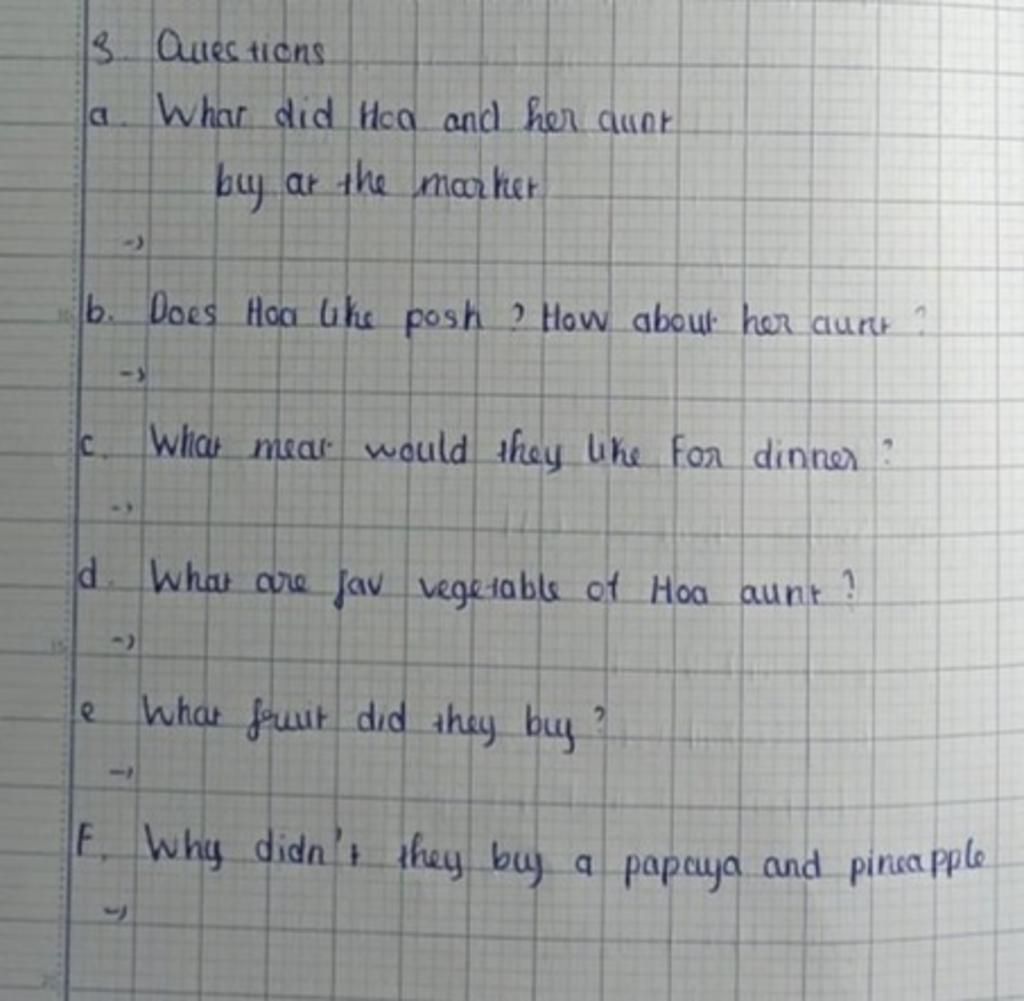 3. Questions
a. What did Hoa and her aunt
buy at the market
->
b. Does Hoa like posk ? How about her aunt ?
->
c. What meat would they like For dinner ?
->
d. What are fav vegetable of Hoa aunt ?
->
e What fruit did they buy ?
->
F. Why didn't they buy a papaya and pineapple
->